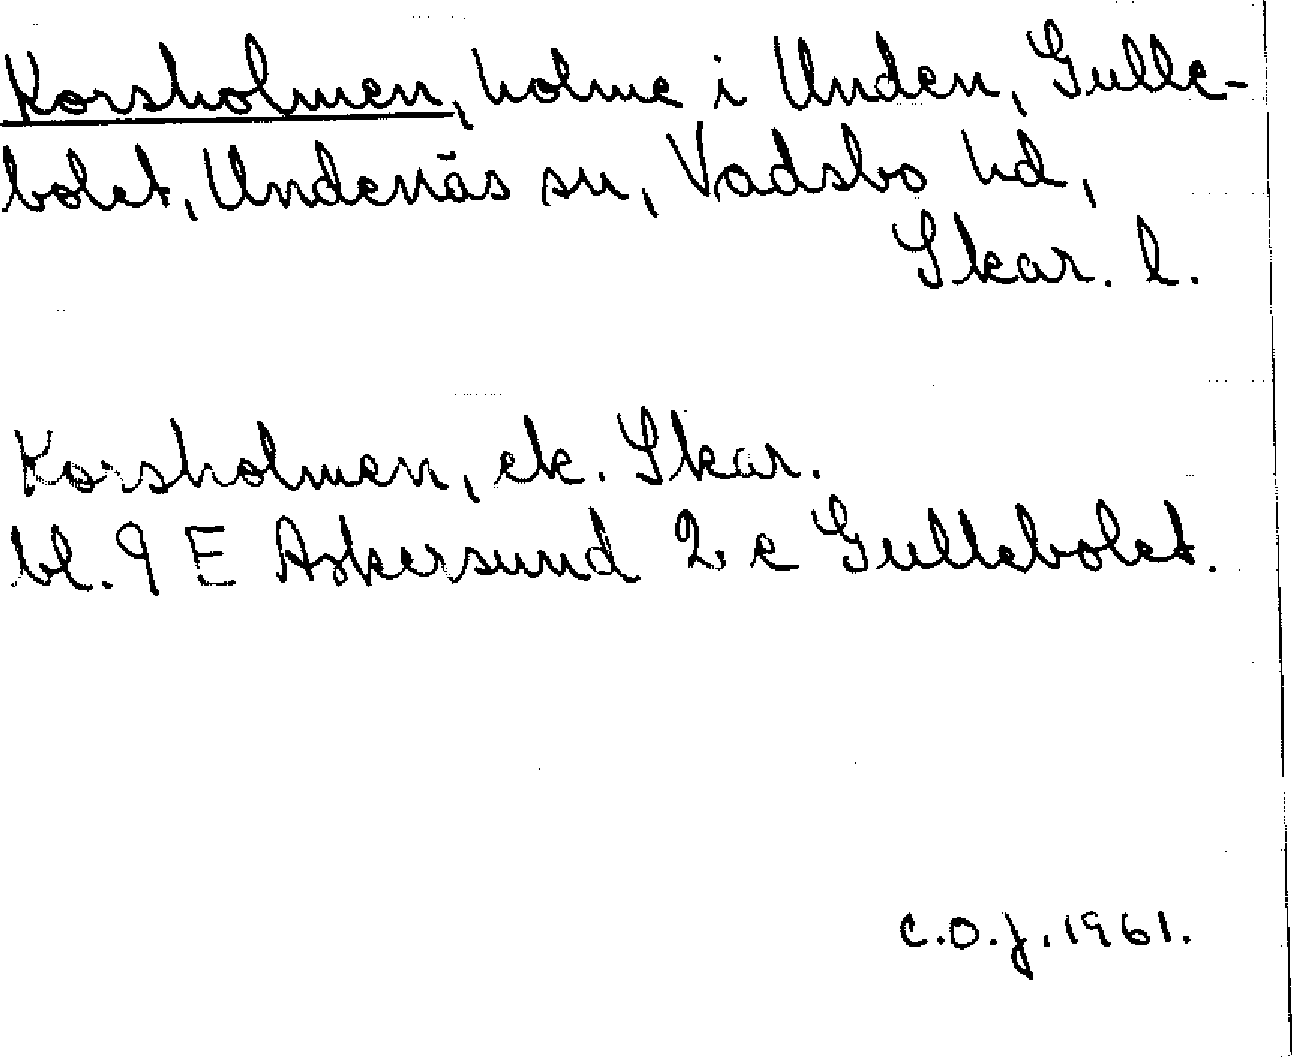 Korsholmen, holme i Unden, Gulle-
bolet, Undenäs sn, Vadsbo hd,
Skar. l.
Korsholmen, ek. Skar.
bl. 9 E Askersund 2 c Gullebolet.
C.O.J. 1961.